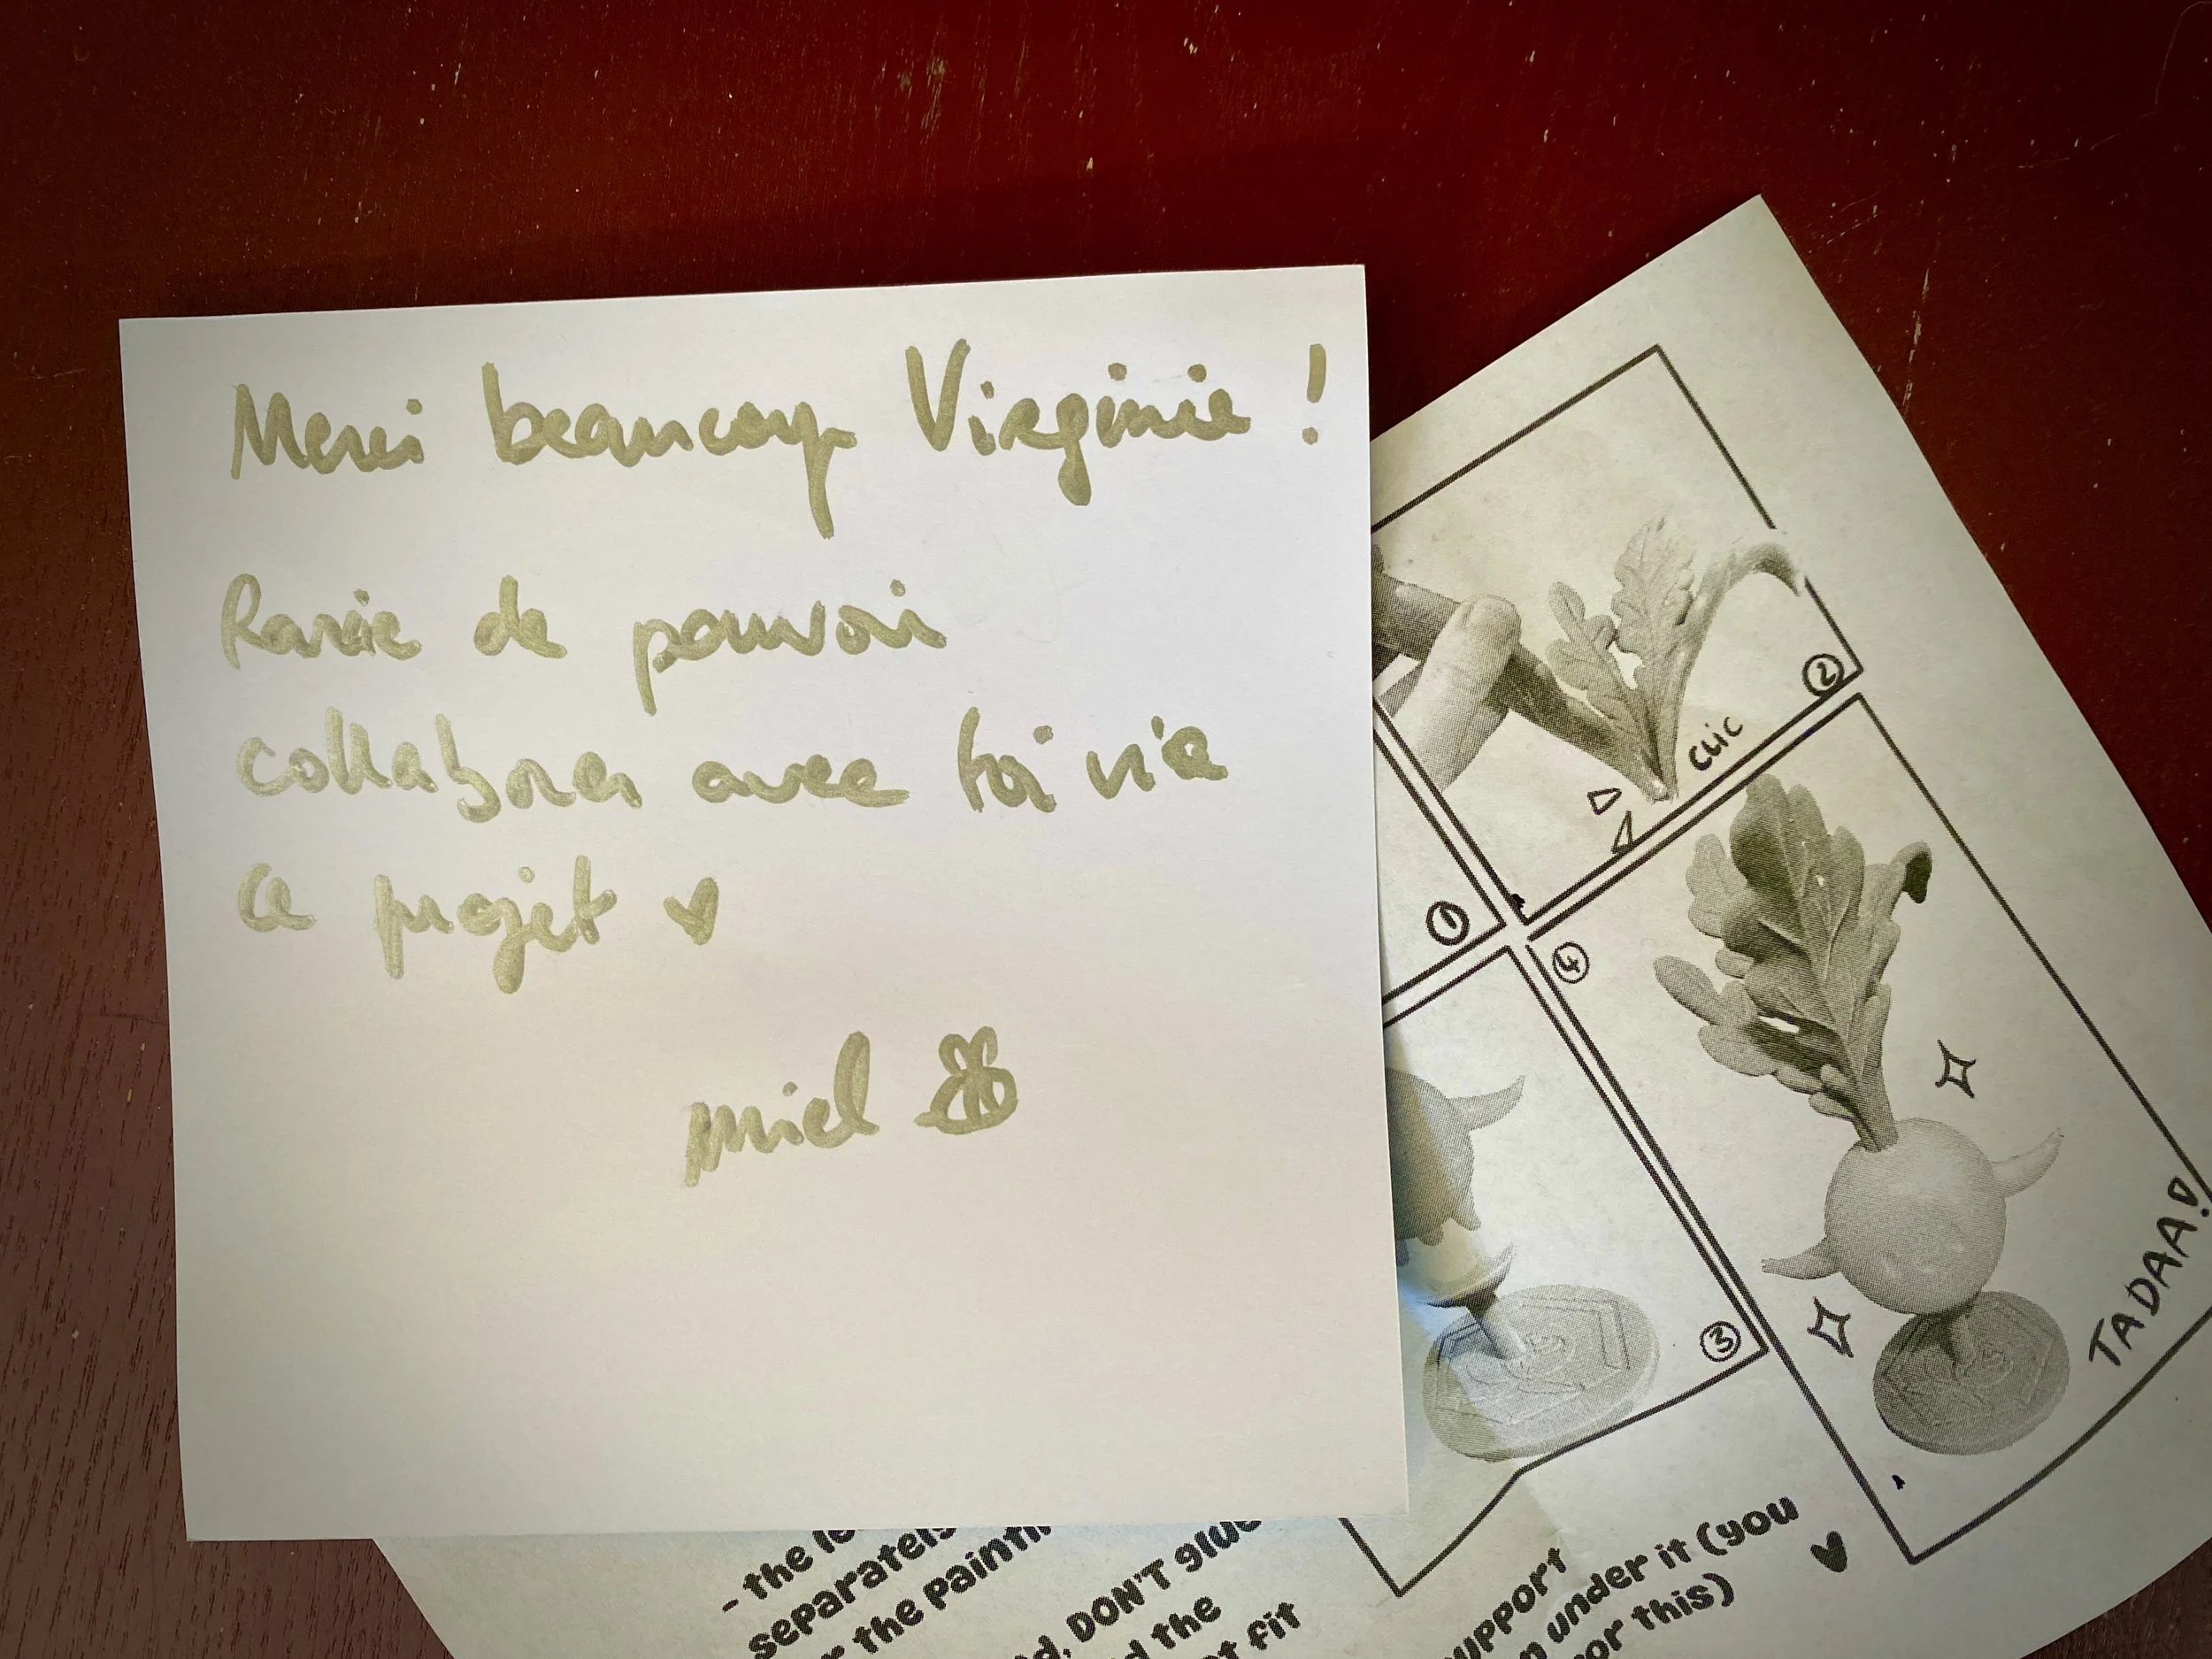 Merci beaucoup Virginie !
Ravie de pouvoir
collaborer avec toi via
ce projet ♥
miel
②
clic
①
④
③
TADAA!
- the
separately
the
DON'T glue
the
fit
support
under it (you
for this) ♥